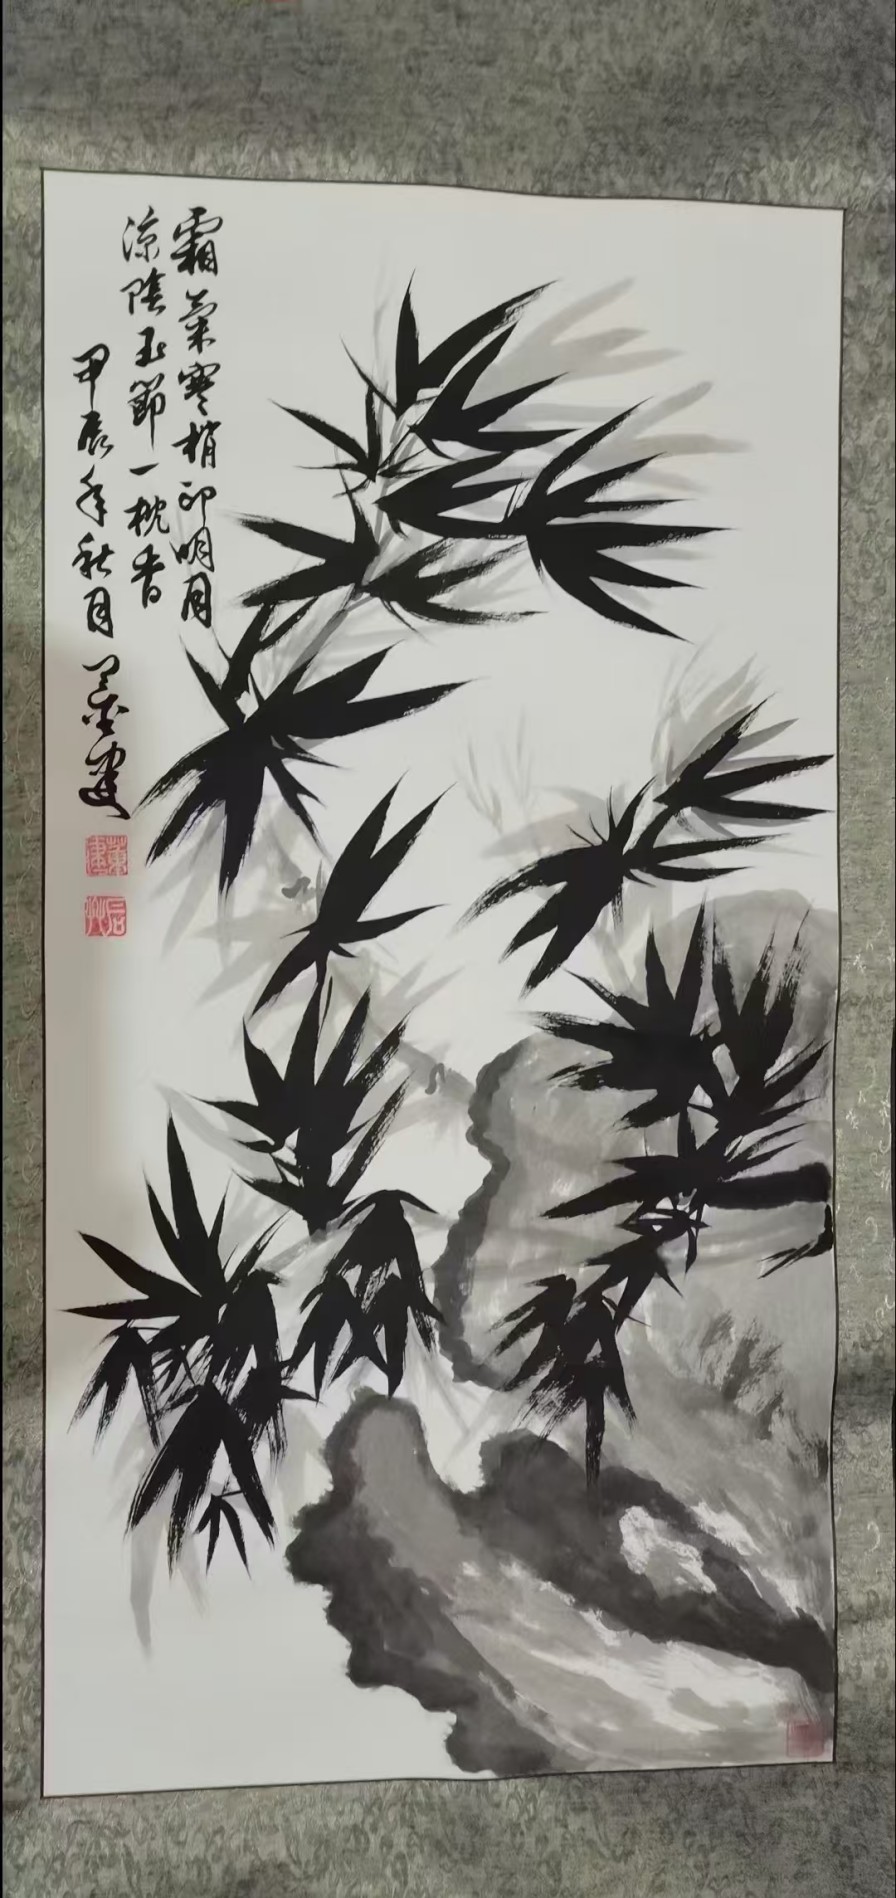 霜氣寒梢印明月
涼陰玉節一枕香
甲辰年秋月 董建
董建